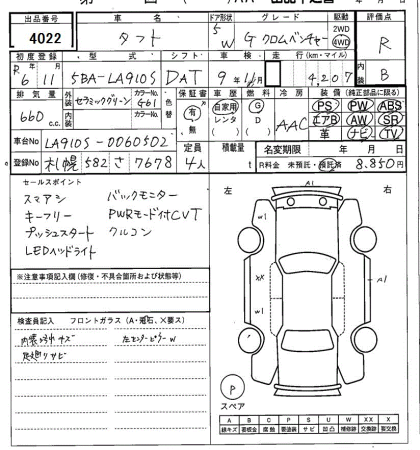 出品番号 車名 ドア形状 グレード 駆動 評価点
4022 タフト 5 W G クロムベンチャー 2WD 4WD R
初度登録 型式 シフト 車検 走行(km・マイル) 内装
R6年11月 5BA-LA910S DAT 9年11月 4,207 B
排気量 外装 カラーNo. 色替 保証書 車歴 燃料 冷房 装備(純正部品に限る)
660 c.c. セラミックグリーン G61 有 無 自家用 レンタ D G D AAC PS PW ABS
内装 カラーNo. エアB AW SR
革 ナビ TV
車台No LA910S-0060502 定員 積載量 名変期限 年 月 日
登録No 札幌 582 さ 7678 4人 t R料金 未預託・預託済 8.850円
セールスポイント
スマアシ バックモニター
キーフリー PWRモード付CVT
プッシュスタート クルコン
LEDヘッドライト
左 右
A1
W1
XX
A1
W1
※注意事項記入欄(修復・不具合箇所および状態等)
検査員記入 フロントガラス(A・飛石、×要ス)
内装よごれキズ 左センターピラーW
足廻りサビ
P
スペア
A B C P S U W XX X
線キズ 要板金 腐食 要塗装 サビ 凹凸 補修跡 交換跡 要交換